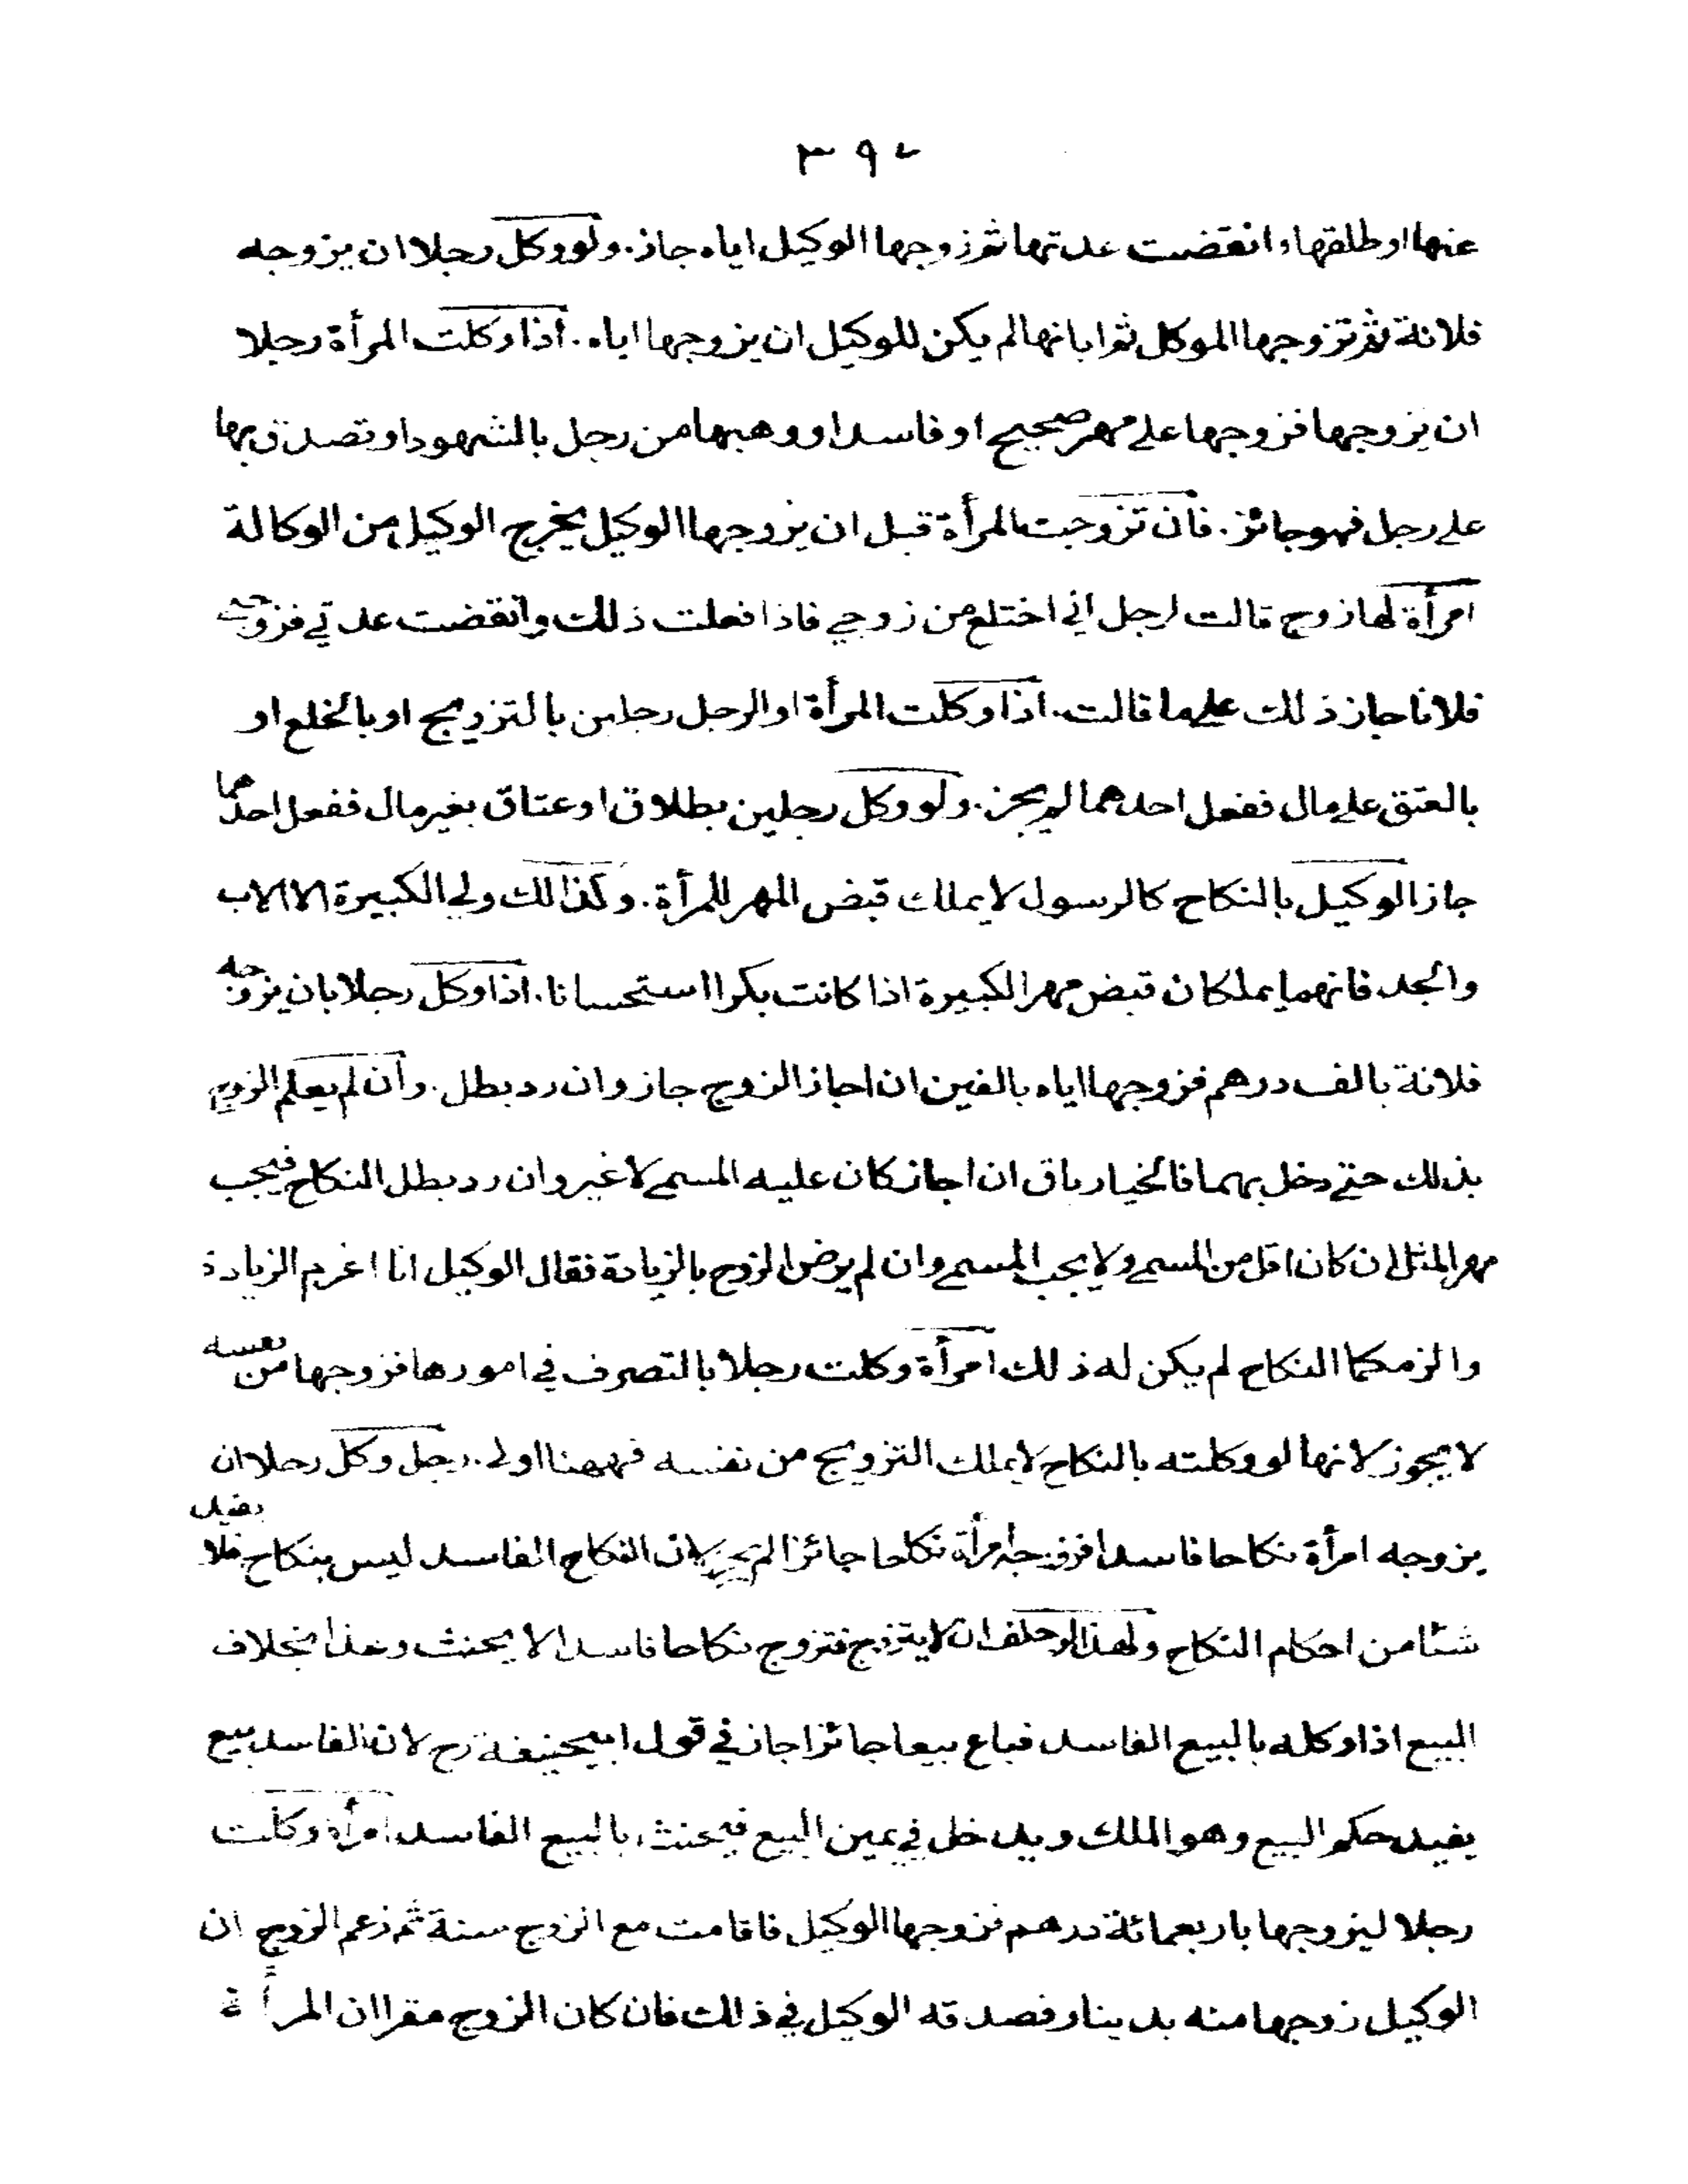 ٣٩٧
عنها او طلقها وانقضت عدتها ثم زوجها الوكيل اياه جاز. ولو وكل رجلا ان يزوجه
فلانة ثم تزوجها الموكل ثم ابانها لم يكن للوكيل ان يزوجها اياه. اذا وكلت المرأة رجلا
ان يزوجها فزوجها على مهر صحيح او فاسد او وهبها من رجل بالشهود او تصدق بها
على رجل فهو جائز. فان تزوجت المرأة قبل ان يزوجها الوكيل يخرج الوكيل من الوكالة
امرأة لها زوج قالت لرجل اني اختلع من زوجي فاذا فعلت ذلك وانقضت عدتي فزوجني
فلانا جاز ذلك على ما قالت. اذا وكلت المرأة او الرجل رجلين بالتزويج او بالخلع او
بالعتق على مال ففعل احدهما لم يجز. ولو وكل رجلين بطلاق او عتاق بغير مال ففعل احدهما
جاز الوكيل بالنكاح كالرسول لا يملك قبض المهر للمرأة. وكذلك ولي الكبيرة الا الاب
والجد فانهما يملكان قبض مهر الكبيرة اذا كانت بكرا استحسانا. اذا وكل رجلا بان يزوجه
فلانة بالف درهم فزوجها اياه بالفين ان اجاز الزوج جاز وان رد بطل. وان لم يعلم الزوج
بذلك حتى دخل بهما فالخيار باق ان اجاز كان عليه المسمى لا غير وان رد بطل النكاح فيجب
مهر المثل ان كان اقل من المسمى ولا يجب المسمى وان لم يرض الزوج بالزيادة فقال الوكيل انا اغرم الزيادة
والزمكما النكاح لم يكن له ذلك امرأة وكلت رجلا بالتصرف في امورها فزوجها من نفسه
لا يجوز لانها لو وكلته بالنكاح لا يملك التزويج من نفسه فههنا اولى. رجل وكل رجلا ان
يزوجه امرأة نكاحا فاسدا فزوجه امرأة نكاحا جائزا لم يجز لان النكاح الفاسد ليس بنكاح فلا يفيد
شئا من احكام النكاح ولهذا لو حلف ان لا يتزوج فتزوج نكاحا فاسدا لا يحنث وهذا بخلاف
البيع اذا وكله بالبيع الفاسد فباع بيعا جائزا جاز في قول ابيحنيفة رح لان الفاسد بيع
يفيد حكم البيع وهو الملك ويدخل في يمين البيع فيحنث بالبيع الفاسد امرأة وكلت
رجلا ليزوجها باربعمائة درهم فزوجها الوكيل فاقامت مع الزوج سنة ثم زعم الزوج ان
الوكيل زوجها منه بدينار فصدقه الوكيل في ذلك فان كان الزوج مقرا ان المرأة